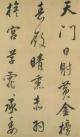 天門日射黃金榜
春殿晴薰赤羽
旗宮草霏霏承委